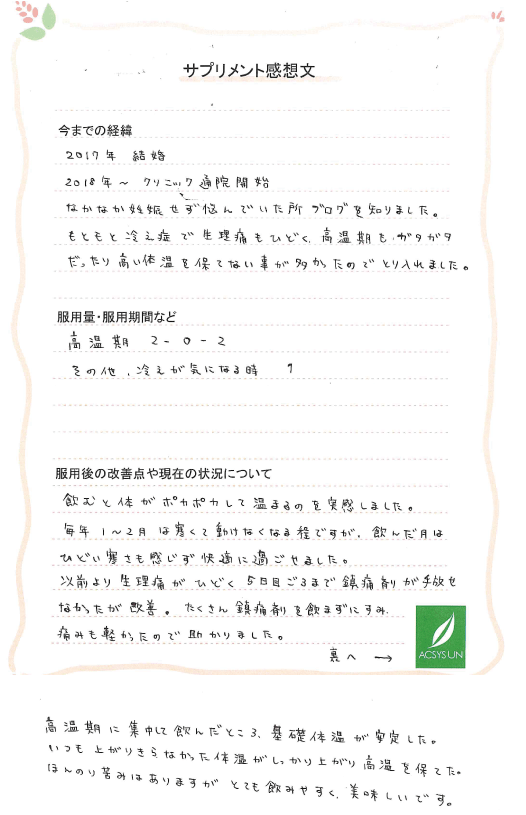 サプリメント感想文
今までの経緯
2017年 結婚
2018年〜 クリニック通院開始
なかなか妊娠せず悩んでいた所 ブログを知りました。
もともと冷え症で生理痛もひどく、高温期も、ガタガタ
だったり高い体温を保てない事が多かったのでとり入れました。
服用量・服用期間など
高温期 2-0-2
その他、冷えが気になる時 1
服用後の改善点や現在の状況について
飲むと体がポカポカして温まるのを実感しました。
毎年1〜2月は寒くて動けなくなる程ですが、飲んだ月は
ひどい寒さも感じず快適に過ごせました。
以前より生理痛がひどく5日目ごろまで鎮痛剤が手放せ
なかったが改善。たくさん鎮痛剤を飲まずにすみ、
痛みも軽かったので助かりました。
裏へ →
ACSYSUN
高温期に集中して飲んだところ、基礎体温が安定した。
いつも上がりきらなかった体温がしっかり上がり高温を保てた。
ほんのり苦みはありますがとても飲みやすく、美味しいです。